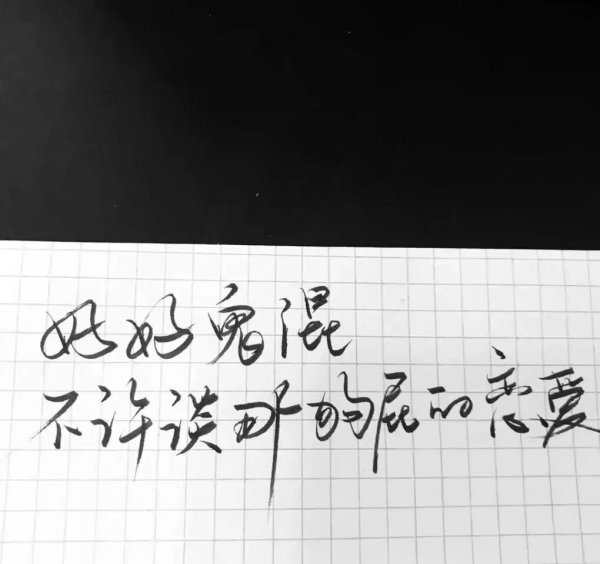 好好鬼混
不许谈那狗屁的恋爱